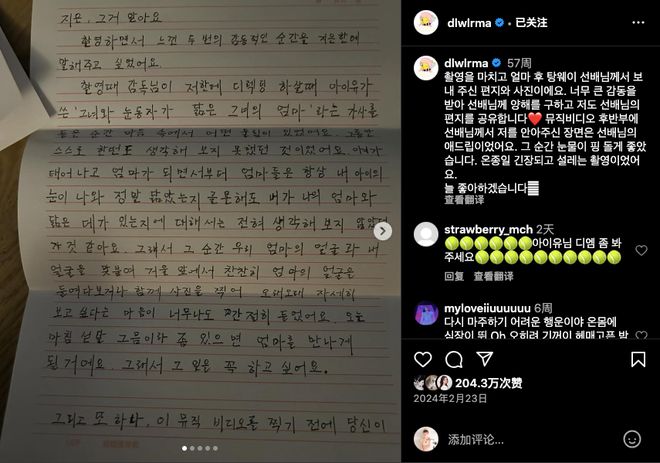 지은, 그거 알아요
촬영하면서 느낀 두 번의 감동적인 순간을 지은한테
말해주고 싶었어요.
촬영때 감독님이 저한테 디렉팅 하실때 아이유가
쓴 '그녀와 눈동자가 닮은 그녀의 엄마' 라는 가사를
듣는 순간 마음 속에서 어떤 울림이 있었어요. 그동안
스스로 한번도 생각해 보지 못했던 것이었어요. 아이가
태어나고 엄마가 되면서부터 엄마들은 항상 내 아이의
눈이 나와 정말 닮았는지 골몰해도 내가 나의 엄마와
닮은 데가 있는지에 대해서는 전혀 생각해 보지 않았던
것 같아요. 그래서 그 순간 우리 엄마의 얼굴과 내
얼굴을 맞붙여 거울 앞에서 찬찬히 엄마의 얼굴을
들여다보거나 함께 사진을 찍어 오래오래 자세히
보고싶다는 마음이 너무나도 간절히 들었어요. 오늘
마침 섣달 그믐이라 좀 있으면 엄마를 만나게
될 거예요. 그래서 그 일을 꼭 하고 싶어요.
그리고 또 하나, 이 뮤직 비디오를 찍기 전에 당신이
dlwlrma • 已关注
dlwlrma 57周
촬영을 마치고 얼마 후 탕웨이 선배님께서 보
내 주신 편지와 사진이에요. 너무 큰 감동을
받아 선배님께 양해를 구하고 저도 선배님의
편지를 공유합니다❤️ 뮤직비디오 후반부에
선배님께서 저를 안아주신 장면은 선배님의
애드립이었어요. 그 순간 눈물이 핑 돌게 좋았
습니다. 온종일 긴장되고 설레는 촬영이었어
요.
늘 좋아하겠습니다
查看翻译
strawberry_mch 2天
🎾🎾🎾🎾🎾🎾아이유님 디엠 좀 봐
주세요🎾🎾🎾🎾🎾🎾🎾🎾🎾🎾
回复 查看翻译
myloveiiuuuuuuu 6周
다시 마주하기 어려운 행운이야 온몸에
심장이 뛰 Oh 오히려 기꺼이 헤매고픈 밤
204.3万次赞
2024年2月23日
添加评论...